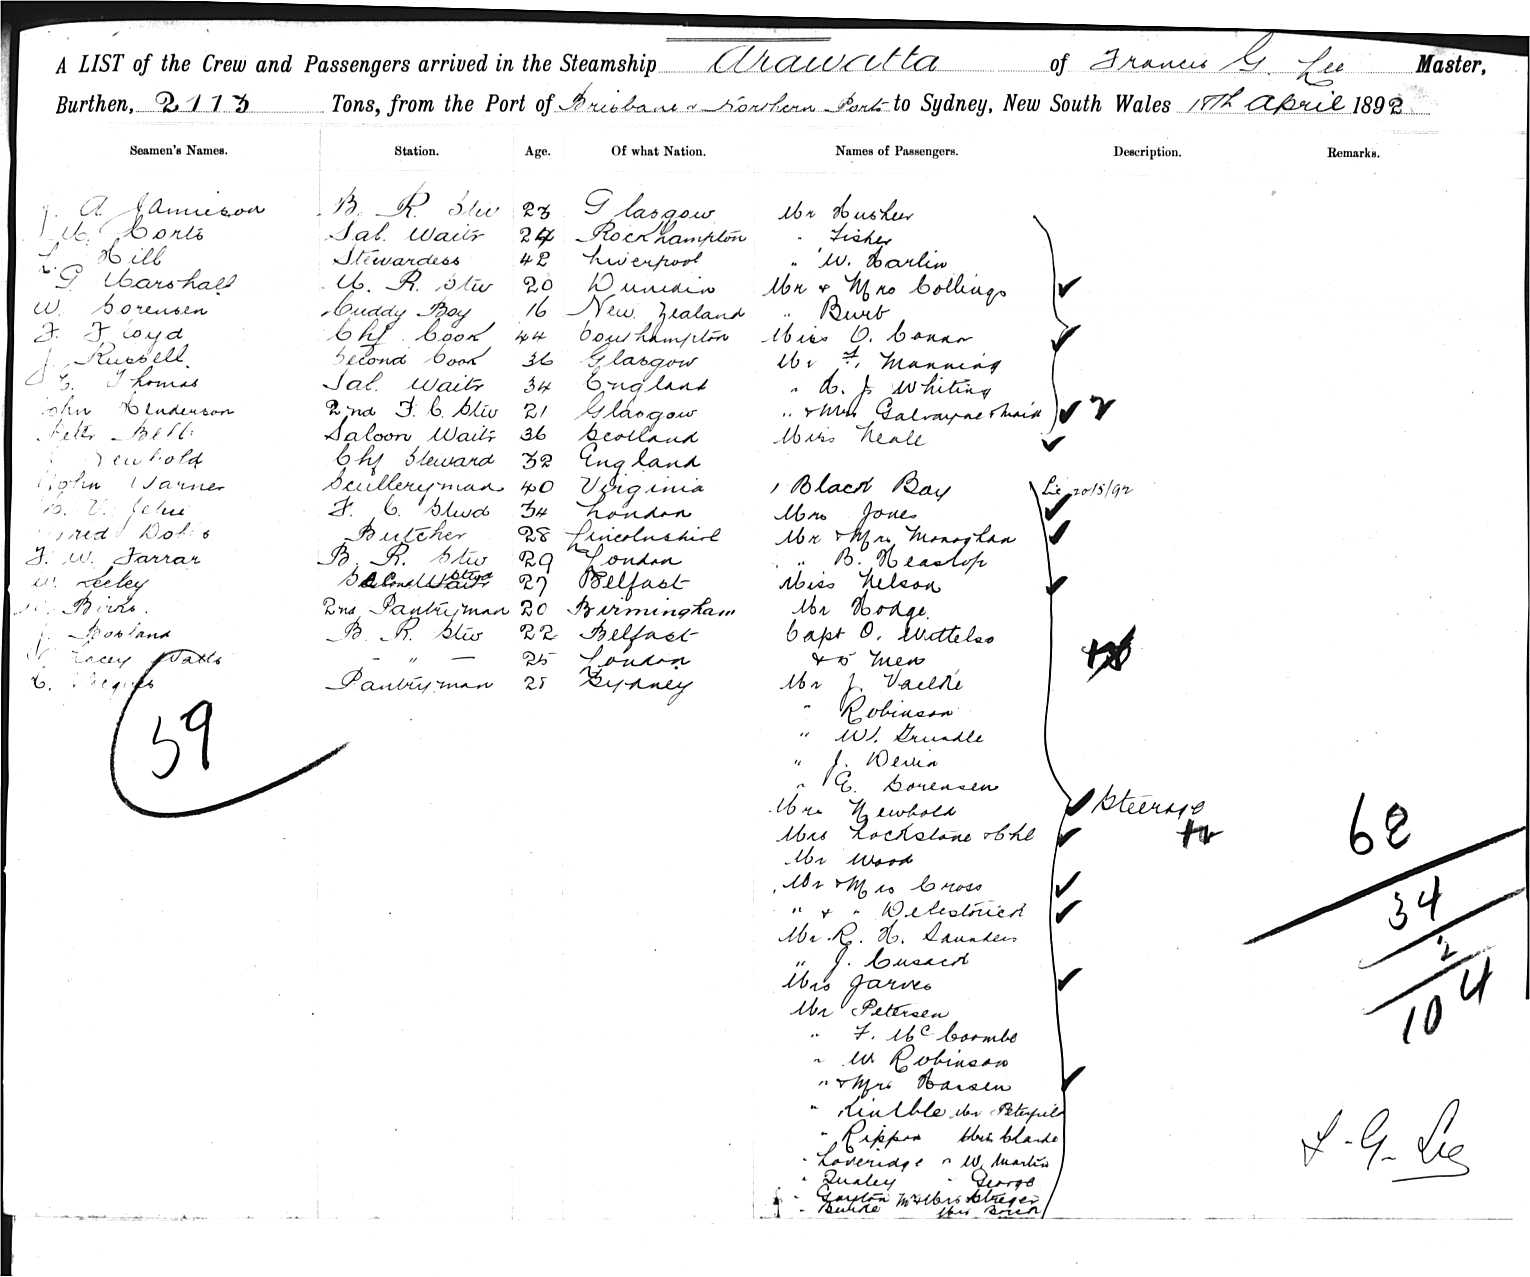 A LIST of the Crew and Passengers arrived in the Steamship Arawatta of Francis G. Lee Master,
Burthen, 2113 Tons, from the Port of Brisbane & Northern Ports to Sydney, New South Wales 18th April 1892
Seamen's Names. Station. Age. Of what Nation. Names of Passengers. Description. Remarks.
A Jamieson B. R. Stw 23 Glasgow Mr Husher
Sal. Waitr 24 Rockhampton " Fisher
Hill Stewardess 42 Liverpool " W. Harlin
G Marshall M. R. Stw 20 Dunedin Mr & Mrs Collings
W. Sorensen Cuddy Boy 16 New Zealand " Burb
F Floyd Chf Cook 44 Southampton Miss O. Connor
J Russell Second Cook 36 Glasgow Mr F. Manning
E. Thomas Sal. Waitr 34 England " H. J. Whiting
John Henderson 2nd F. C. Stw 21 Glasgow " & Mrs Galvayne & Maid
Peter Bell Saloon Waitr 36 Scotland Miss Neale
Newbold Chf Steward 32 England
John Warner Scullery man 40 Virginia 1 Black Boy Lic 20/5/92
F. C. Stwd 34 London Mrs Jones
Butcher 28 Lincolnshire Mr & Mrs Monaghan
F. W. Farrar B. R. Stw 29 London " B. Heaslop
W. Seeley 27 Belfast Miss Nelson
Birks. 2nd Pantryman 20 Birmingham Mr Hodge
J. Boyland B. R. Stw 22 Belfast Capt O. Wittelso
Lacey Watts - " - 25 London & 5 Men
Pantryman 28 Sydney Mr J.
" Robinson
59
" W. Grundle
" J. Devin
" E. Sorensen
Mrs Newbold Steerage
Mrs Lockstone & Chl 68
Mr Wood
Mr & Mrs Cross 34
" & "
Mr R. H. Saunders 2
" J. Cusack
Mrs Jarves 104
Mr Petersen
" F. McCoombe
" W Robinson
" & Mrs Hansen
" Mr
" Rippon Miss Clarke
" Loveridge " W. Martin F. G. Lee
" Quality " George
" Gayton Mr & Mrs
" Burke Mrs